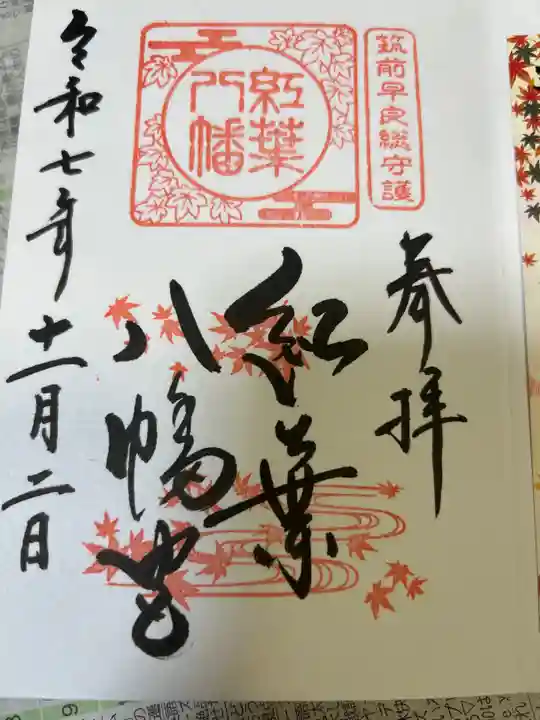 奉拝
筑前早良総守護
紅葉
八幡
紅葉
八幡宮
令和七年十一月二日